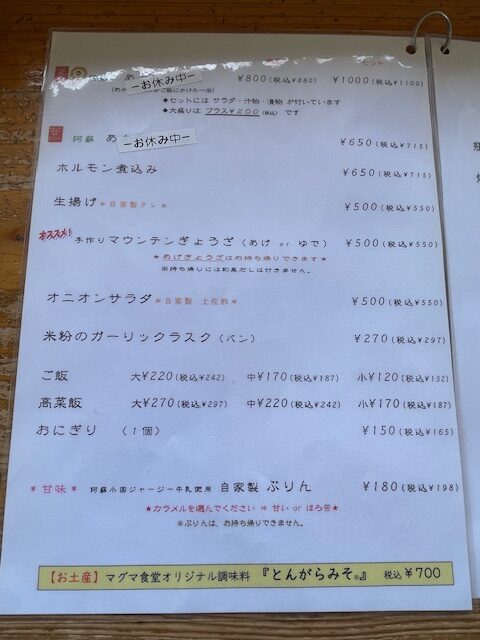 セット
あ －お休み中－ ¥800(税込¥880) ¥1000(税込¥1100)
◆セットには サラダ・汁物・漬物 が付いています
◆大盛りは プラス¥200(税込) です
阿蘇 あ －お休み中－ ¥650(税込¥715)
ホルモン煮込み ¥650(税込¥715)
生揚げ＊自家製タレ＊ ¥500(税込¥550)
オススメ! 手作りマウンテンぎょうざ（あげ or ゆで） ¥500(税込¥550)
★あげぎょうざはお持ち帰りできます★
※持ち帰りには和風だしは付きません。
オニオンサラダ＊自家製 土佐酢＊ ¥500(税込¥550)
米粉のガーリックラスク（パン） ¥270(税込¥297)
ご飯 大¥220(税込¥242) 中¥170(税込¥187) 小¥120(税込¥132)
高菜飯 大¥270(税込¥297) 中¥220(税込¥242) 小¥170(税込¥187)
おにぎり （1個） ¥150(税込¥165)
＊甘味＊ 阿蘇小国ジャージー牛乳使用 自家製 ぷりん ¥180(税込¥198)
★カラメルを選んでください ⇒ 甘い or ほろ苦★
※ぷりんは、お持ち帰りできません。
【お土産】マグマ食堂オリジナル調味料 『とんがらみそ®』 税込¥700